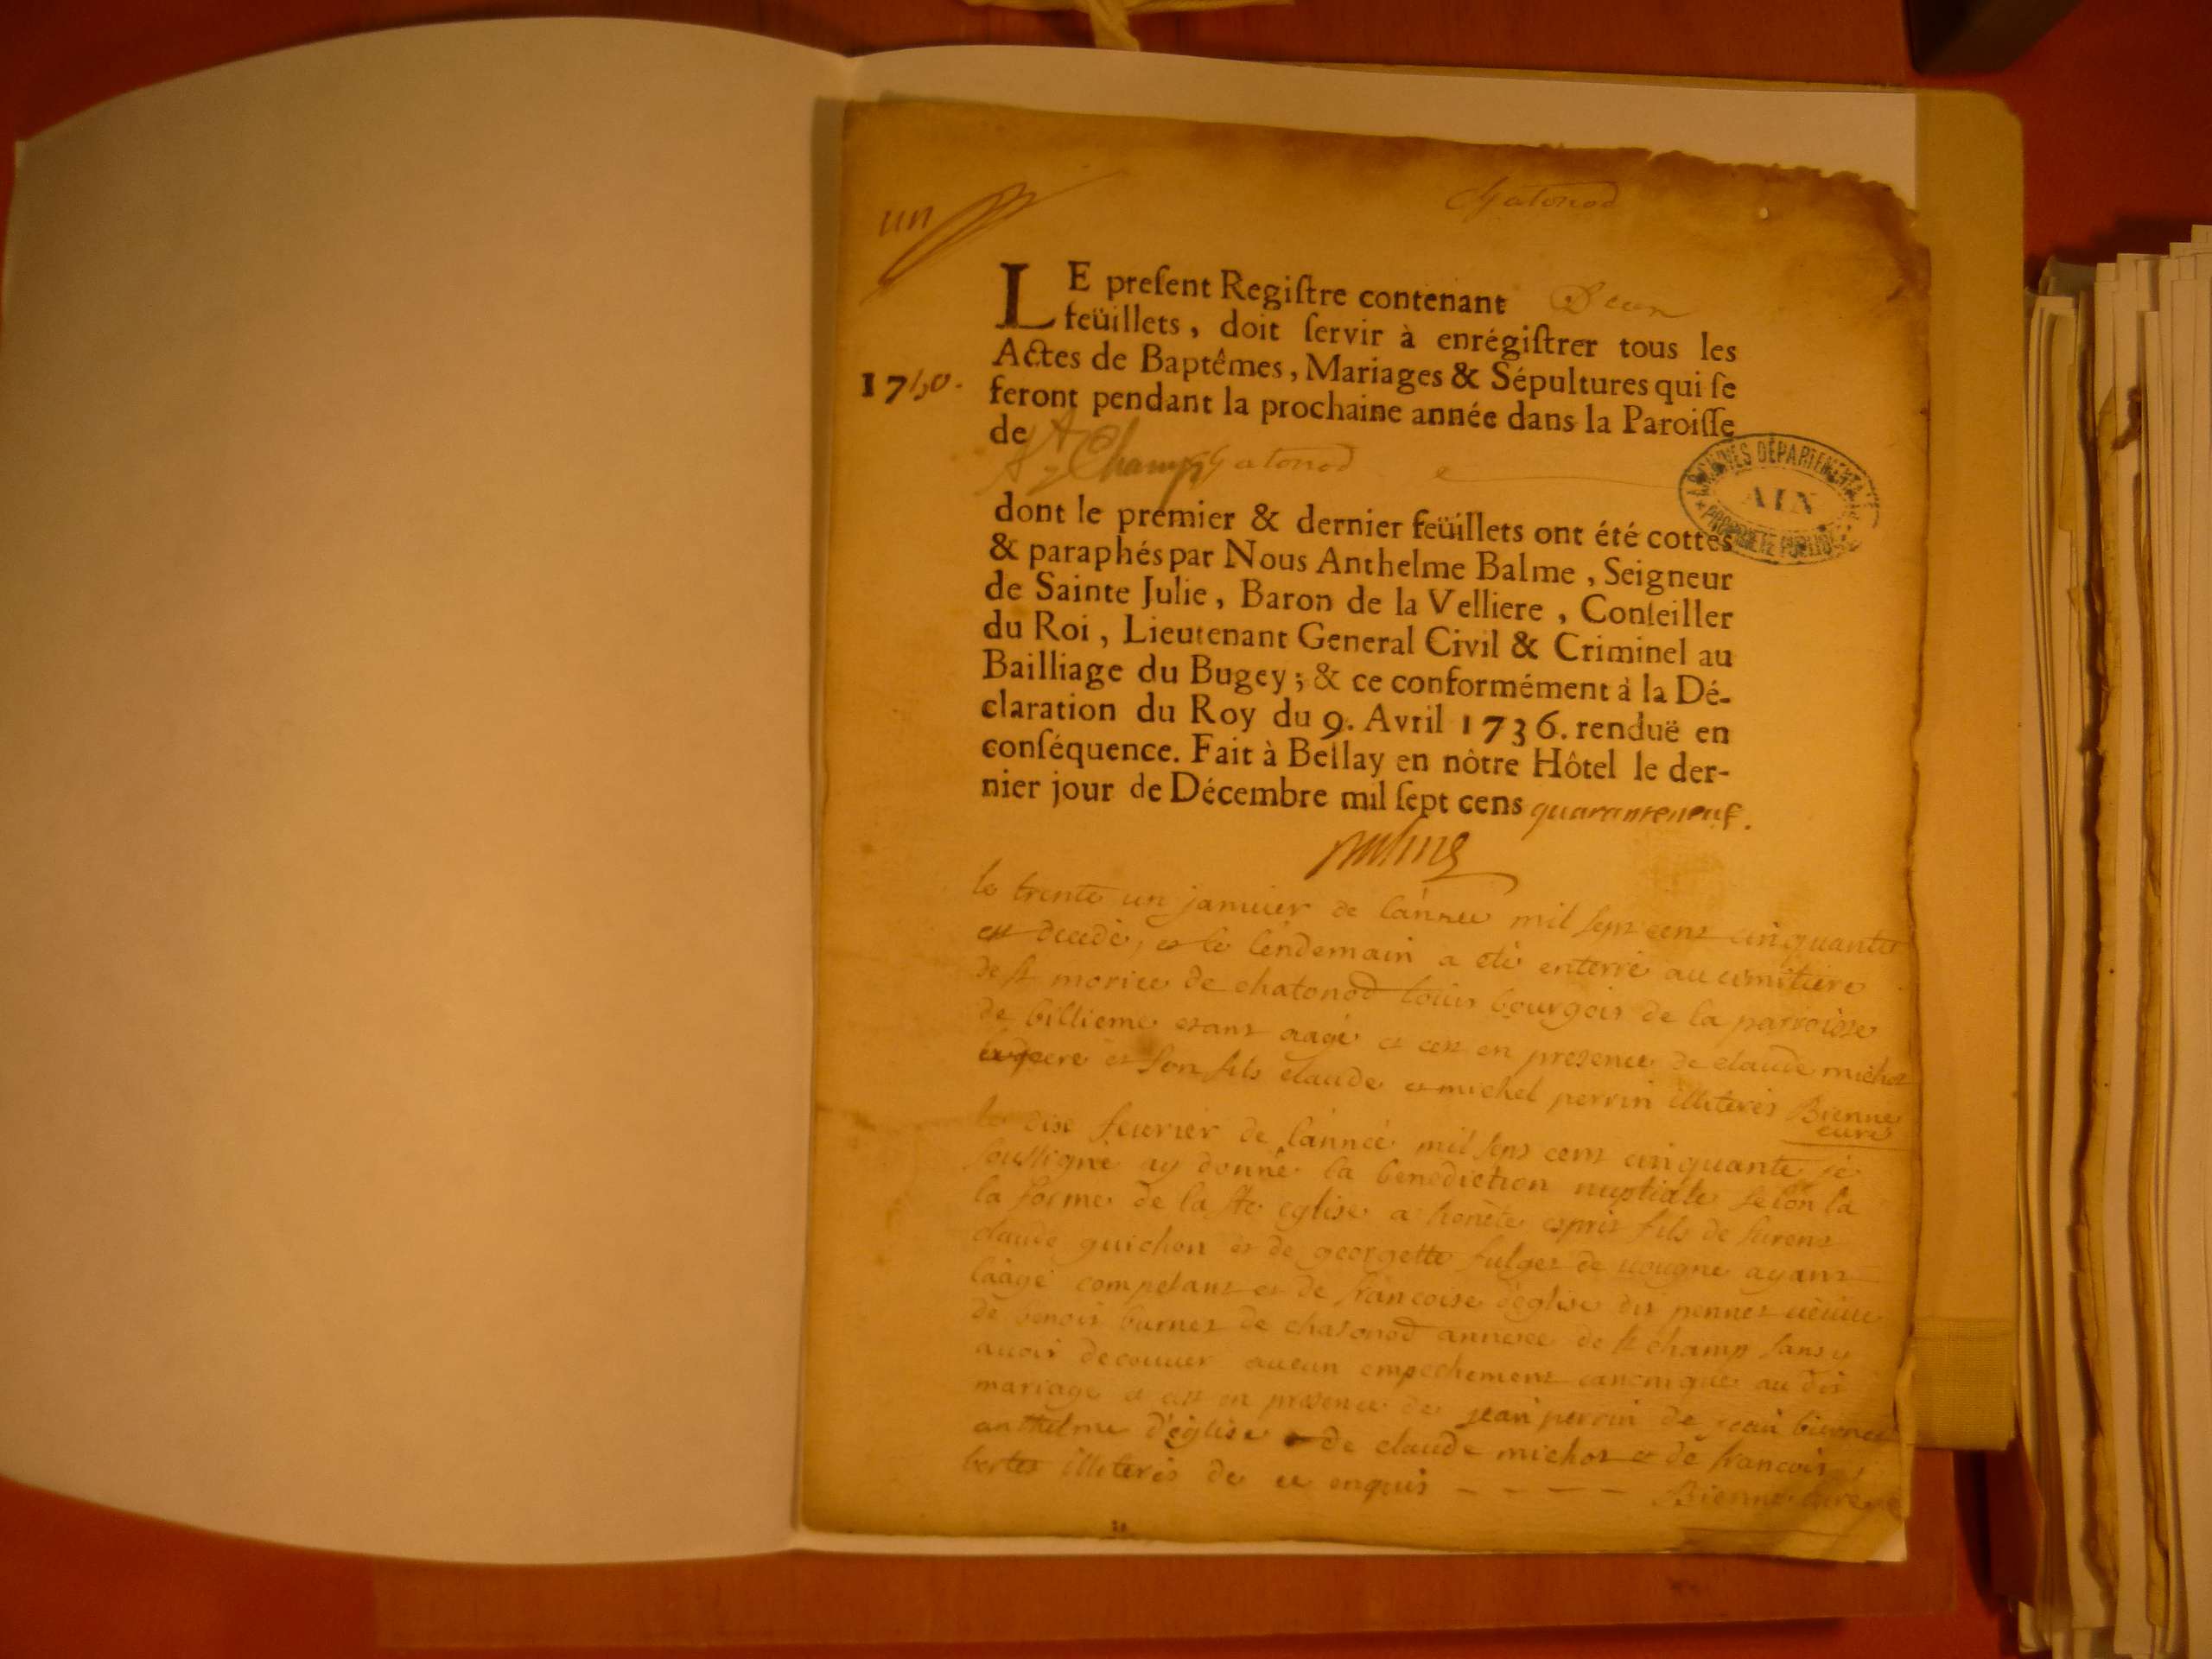 un
chatonod
LE preſent Regiſtre contenant Deux
feüillets, doit ſervir à enrégiſtrer tous les
Actes de Baptêmes, Mariages & Sépultures qui ſe
1750. feront pendant la prochaine année dans la Paroiſſe
de
St Champ Chatonod
ARCHIVES DÉPARTEMENTALES
AIN
PROPRIÉTÉ PUBLIQUE
dont le premier & dernier feüillets ont été cottés
& paraphés par Nous Anthelme Balme, Seigneur
de Sainte Julie, Baron de la Velliere, Conſeiller
du Roi, Lieutenant General Civil & Criminel au
Bailliage du Bugey; & ce conformément à la Dé-
claration du Roy du 9. Avril 1736. renduë en
conſéquence. Fait à Bellay en nôtre Hôtel le der-
nier jour de Décembre mil ſept cens quaranteneuf.
Balme
le trente un januier de l'année mil sept cent cinquante
est decedé, et le lendemain a eté enterré au cimitiere
de st morice de chatonod louis bourgois de la parroisse
de billieme etant aagé et cest en presence de claude michot
et son fils claude et michel perrin illiterés Bienne
curé
le dise feurier de l'année mil sept cent cinquante je
soussigné ay donné la benediction nuptiale selon la
la forme de la ste eglise a honéte esprit fils de furent
claude guichon et de georgette fulget de uougne ayant
l'aage competant et de francoise d'eglise dit pennet ueuue
de benoit burnet de chatonod annexe de st champ sans y
auoir decouuer aucun empechement canonique au dit
mariage et cest en presence de jean perrin de jean burnet
anthelme d'église de claude michot et de francois
bertet illiterés de ce enquis - - - - Bienne curé